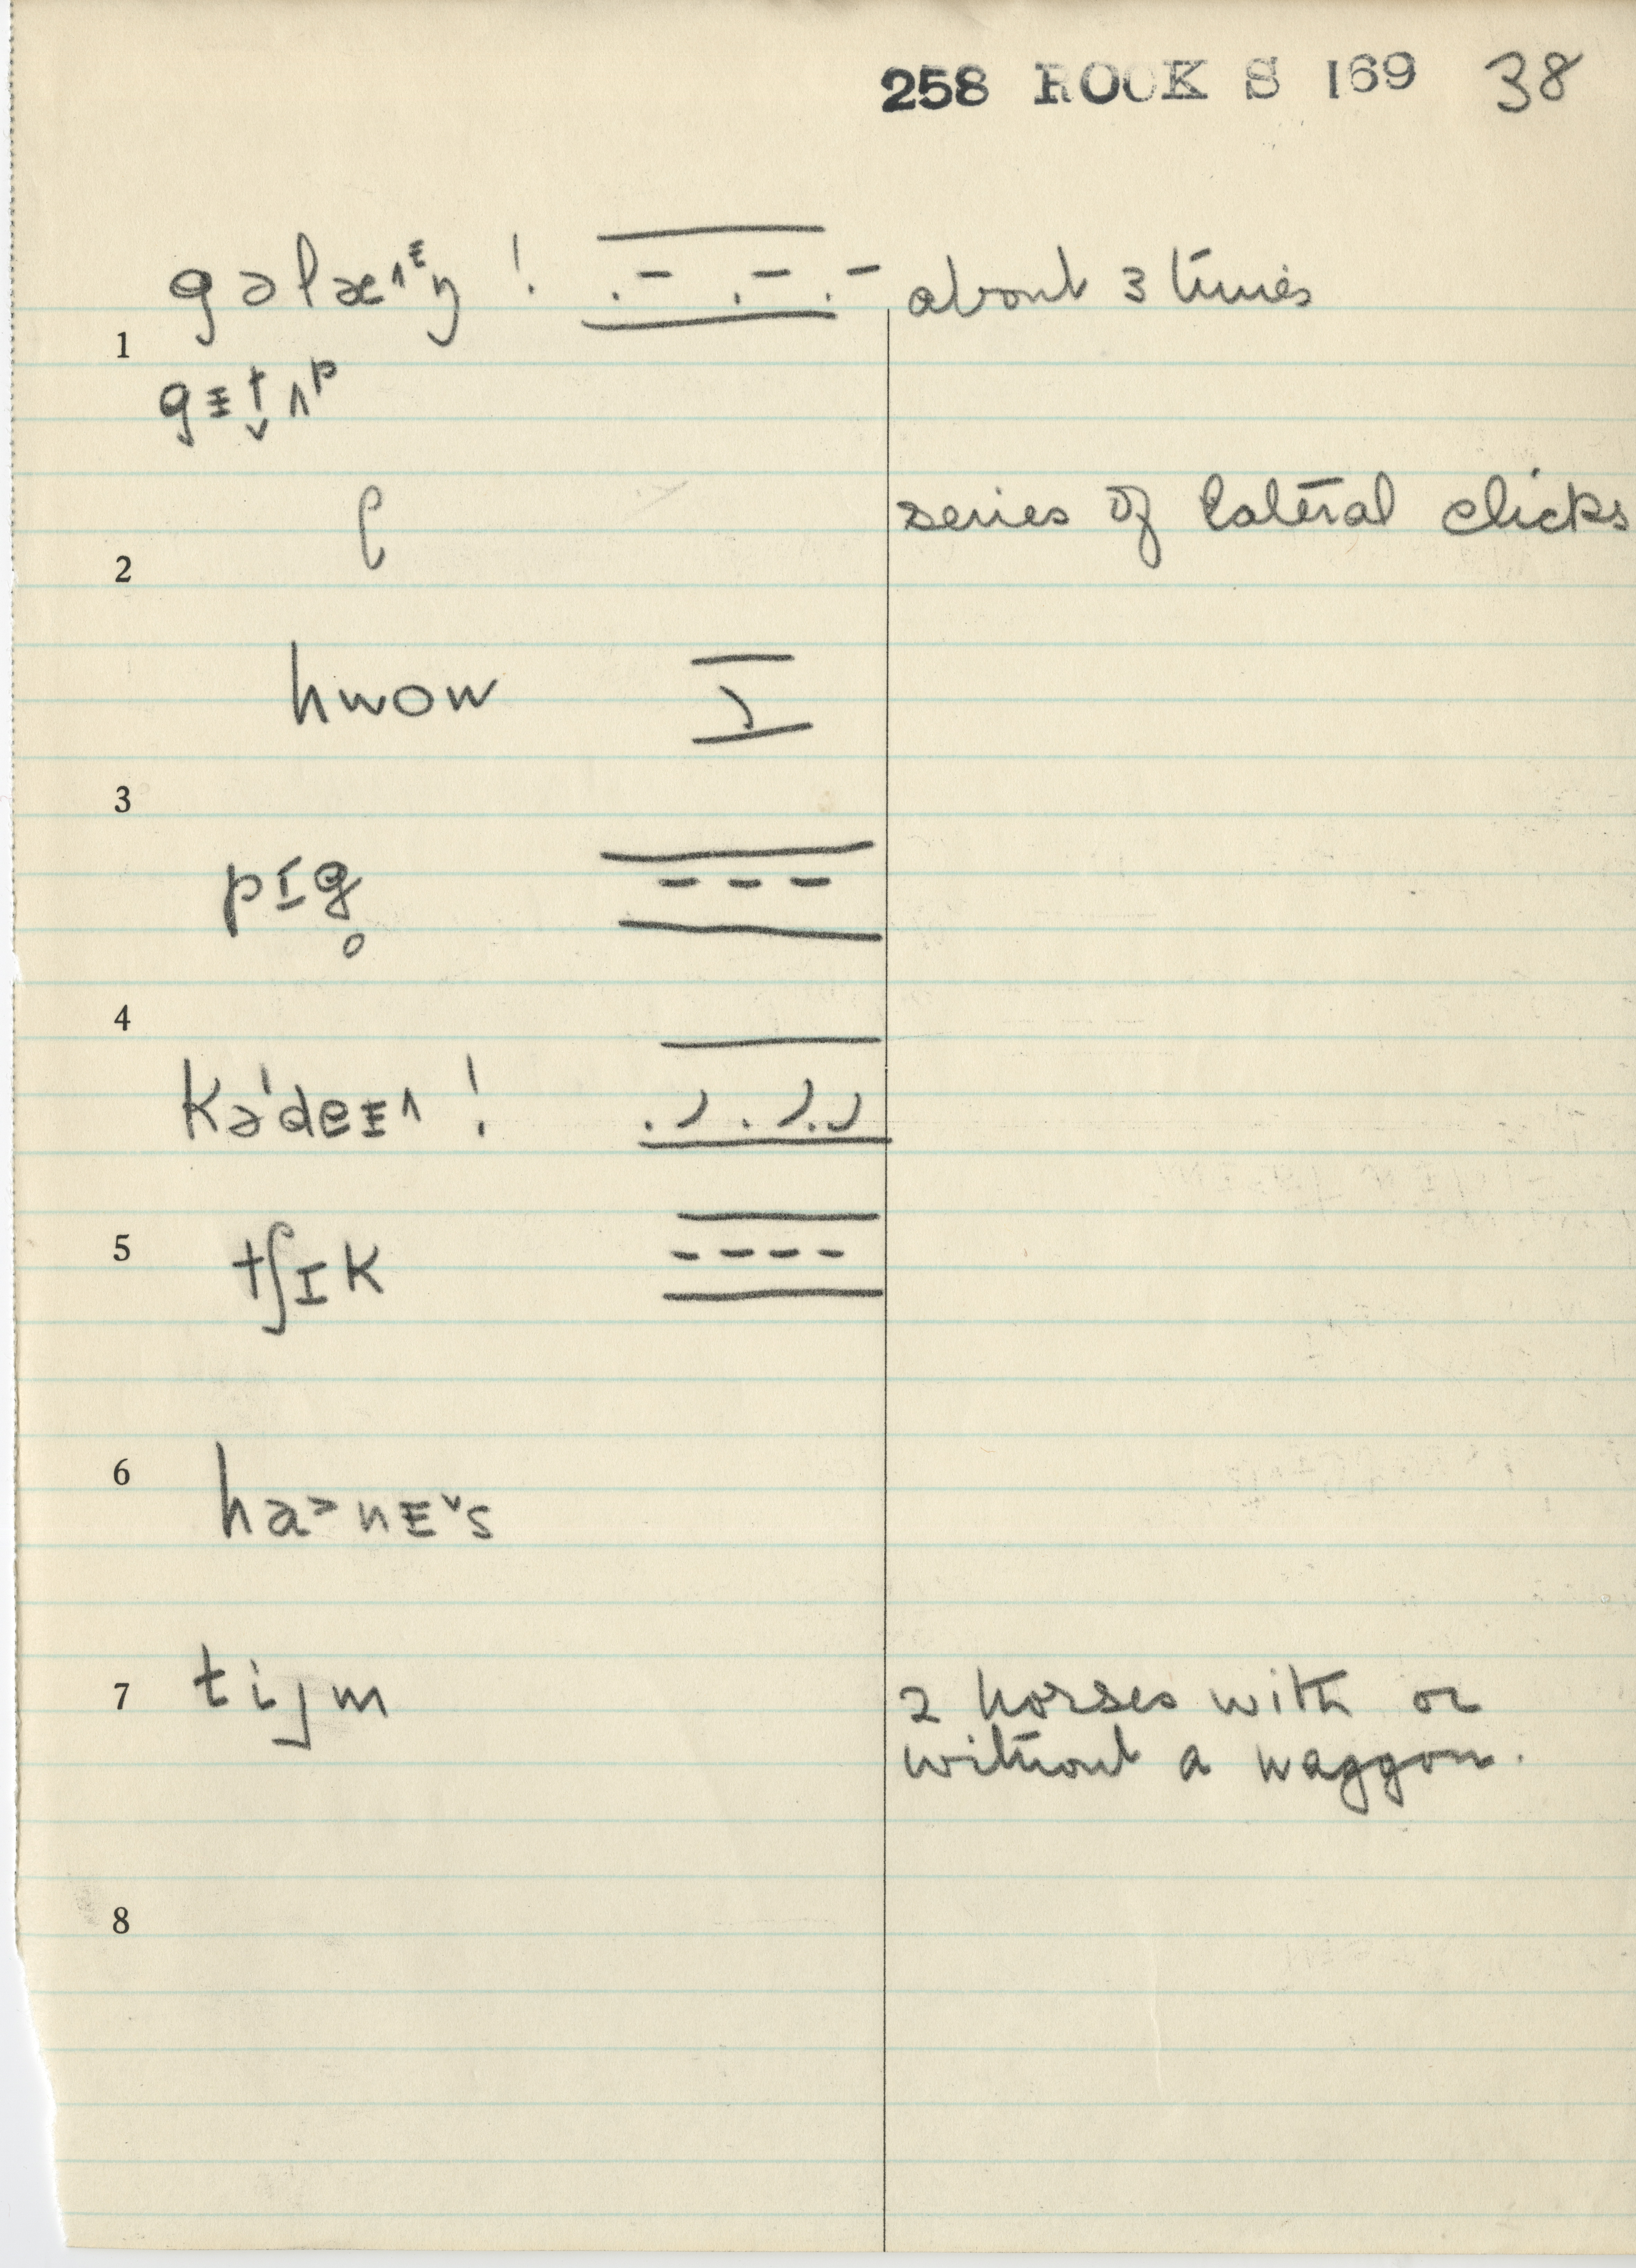 258 ROCK S 169 38
gəlæ˄ᵋŋ ! about 3 times
1
gɛt̬ʌᵖ
ʗ series of lateral clicks
2
hwow
3
pɪg̥
4
kə'deɛ˄ !
5 tʃɪk
6
ha˃nɛ˅s
7 tijm 2 horses with or
without a waggon.
8